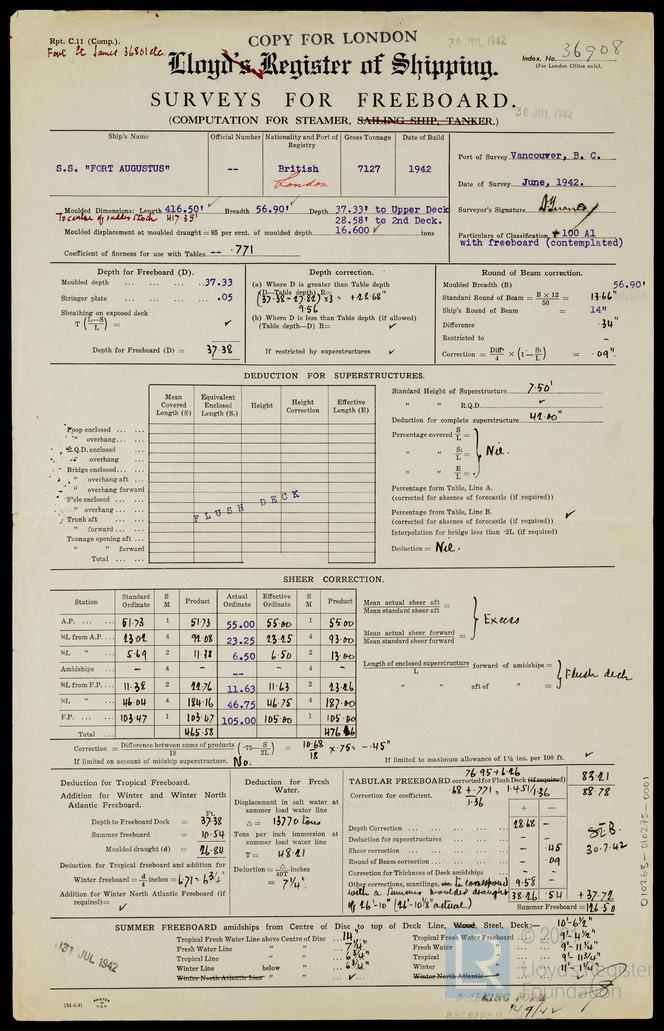 Rpt. C.11 (Comp.).
COPY FOR LONDON
30 JUL 1942
Index. No. 36908
(For London Office only).
Fort St James 36801 etc.
Lloyd's Register of Shipping.
SURVEYS FOR FREEBOARD.
30 JUL 1942
(COMPUTATION FOR STEAMER, SAILING SHIP, TANKER.)
Ship's Name
Official Number
Nationality and Port of Registry
Gross Tonnage
Date of Build
S.S. "FORT AUGUSTUS"
--
British
London
7127
1942
Port of Survey Vancouver, B. C.
Date of Survey June, 1942.
Surveyor's Signature
Particulars of Classification +100 A1
with freeboard (contemplated)
Moulded Dimensions: Length 416.50' Breadth 56.90' Depth 37.33' to Upper Deck
28.58' to 2nd Deck.
To center of rudder stock 417.35'
Moulded displacement at moulded draught = 85 per cent. of moulded depth 16.600 tons
Coefficient of fineness for use with Tables -- .771
Depth for Freeboard (D).
Moulded depth ... ... ... ..37.33
Stringer plate ... ... ... .05
Sheathing on exposed deck
T (L-S/L) = ✓
Depth for Freeboard (D) = 37.38
Depth correction.
(a) Where D is greater than Table depth
(D-Table depth) R=
(37.38 - 27.82) x 3 = + 28.68"
9.56
(b) Where D is less than Table depth (if allowed)
(Table depth—D) R= ✓
If restricted by superstructures ✓
Round of Beam correction.
Moulded Breadth (B) 56.90'
Standard Round of Beam = B × 12 / 50 = 13.66"
Ship's Round of Beam = 14"
Difference .34"
Restricted to -
Correction = Diff / 4 × (1 - S1/L) = .09".
DEDUCTION FOR SUPERSTRUCTURES.
Mean Covered Length (S)
Equivalent Enclosed Length (S1)
Height
Height Correction
Effective Length (E)
Poop enclosed ... ...
" overhang... ...
R.Q.D. enclosed ...
" overhang ...
Bridge enclosed... ...
" overhang aft ...
" overhang forward
F'cle enclosed ... ...
" overhang ... ...
Trunk aft ... ...
" forward ... ...
Tonnage opening aft ...
" " forward
Total ... ...
FLUSH DECK
Standard Height of Superstructure 7.50'
" " R.Q.D. ✓
Deduction for complete superstructure 42.00"
Percentage covered S/L =
" " S1/L = Nil.
" " E/L =
Percentage from Table, Line A.
(corrected for absence of forecastle (if required))
Percentage from Table, Line B.
(corrected for absence of forecastle (if required)) ✓
Interpolation for bridge less than ·2L (if required)
Deduction = Nil.
SHEER CORRECTION.
Station
Standard Ordinate
S M
Product
Actual Ordinate
Effective Ordinate
S M
Product
A.P. ... ... 51.73 1 51.73 55.00 55.00 1 55.00
⅙L from A.P. ... 23.02 4 92.08 23.25 23.25 4 93.00
⅓L " ... 5.69 2 11.38 6.50 6.50 2 13.00
Amidships ... - 4 - -- - 4 -
⅓L from F.P. ... 11.38 2 22.76 11.63 11.63 2 23.26
⅙L " ... 46.04 4 184.16 46.75 46.75 4 187.00
F.P. ... ... 103.47 1 103.47 105.00 105.00 1 105.00
Total ... 465.58 476.26
Mean actual sheer aft / Mean standard sheer aft =
Excess
Mean actual sheer forward / Mean standard sheer forward =
Length of enclosed superstructure / L forward of amidships =
Flush deck
" " aft of " =
Correction = Difference between sums of products / 18 (·75— S/2L) = 10.68 / 18 x .75 = -.45"
If limited on account of midship superstructure. No.
If limited to maximum allowance of 1½ ins. per 100 ft. ✓
Deduction for Tropical Freeboard.
Addition for Winter and Winter North Atlantic Freeboard.
Ft.
Depth to Freeboard Deck = 37.38
Summer freeboard = 10.54
Moulded draught (d) = 26.84
Deduction for Tropical freeboard and addition for
Winter freeboard = d/4 inches = 6.71 = 6¾"
Addition for Winter North Atlantic Freeboard (if required) =
✓
Deduction for Fresh Water.
Displacement in salt water at summer load water line
Δ = 13770 tons
Tons per inch immersion at summer load water line
T = 48.21
Deduction = Δ / 40T inches
= 7¼".
76.95 + 6.26
TABULAR FREEBOARD corrected for Flush Deck (if required) 83.21
Correction for coefficient. .68 + .771 = 1.451/1.36 88.78
1.36
+ -
Depth Correction ... ... ... 28.68 -
Deduction for superstructures ... ... - -
Sheer correction ... ... ... - .45
Round of Beam correction ... ... ... - .09
Correction for Thickness of Deck amidships - -
Other corrections, scantlings, etc. to correspond 9.58 -
with a Summer moulded draught
of 26'-10" (26'-10⅛" actual)
38.26 .54 + 37.72
Summer Freeboard = 126.50
30.7.42
SUMMER FREEBOARD amidships from Centre of Disc to top of Deck Line, Wood, Steel, Deck:— 10'-6½"
Tropical Fresh Water Line above Centre of Disc ... 14"
Fresh Water Line " " ... 7¼"
Tropical Line " " ... 6¾"
Winter Line below " ... 6¾"
Winter North Atlantic Line " " ... ✓
Tropical Fresh Water Freeboard ... 9'-4½"
Fresh Water " ... 9'-11¼"
Tropical " ... 9'-11¾"
Winter " ... 11'-1¼"
Winter North Atlantic "
31 JUL 1942
1M-6-41
PRINTED IN U.S.A.
010268-010275-0001
© 20
Lloyd's Register
Foundation